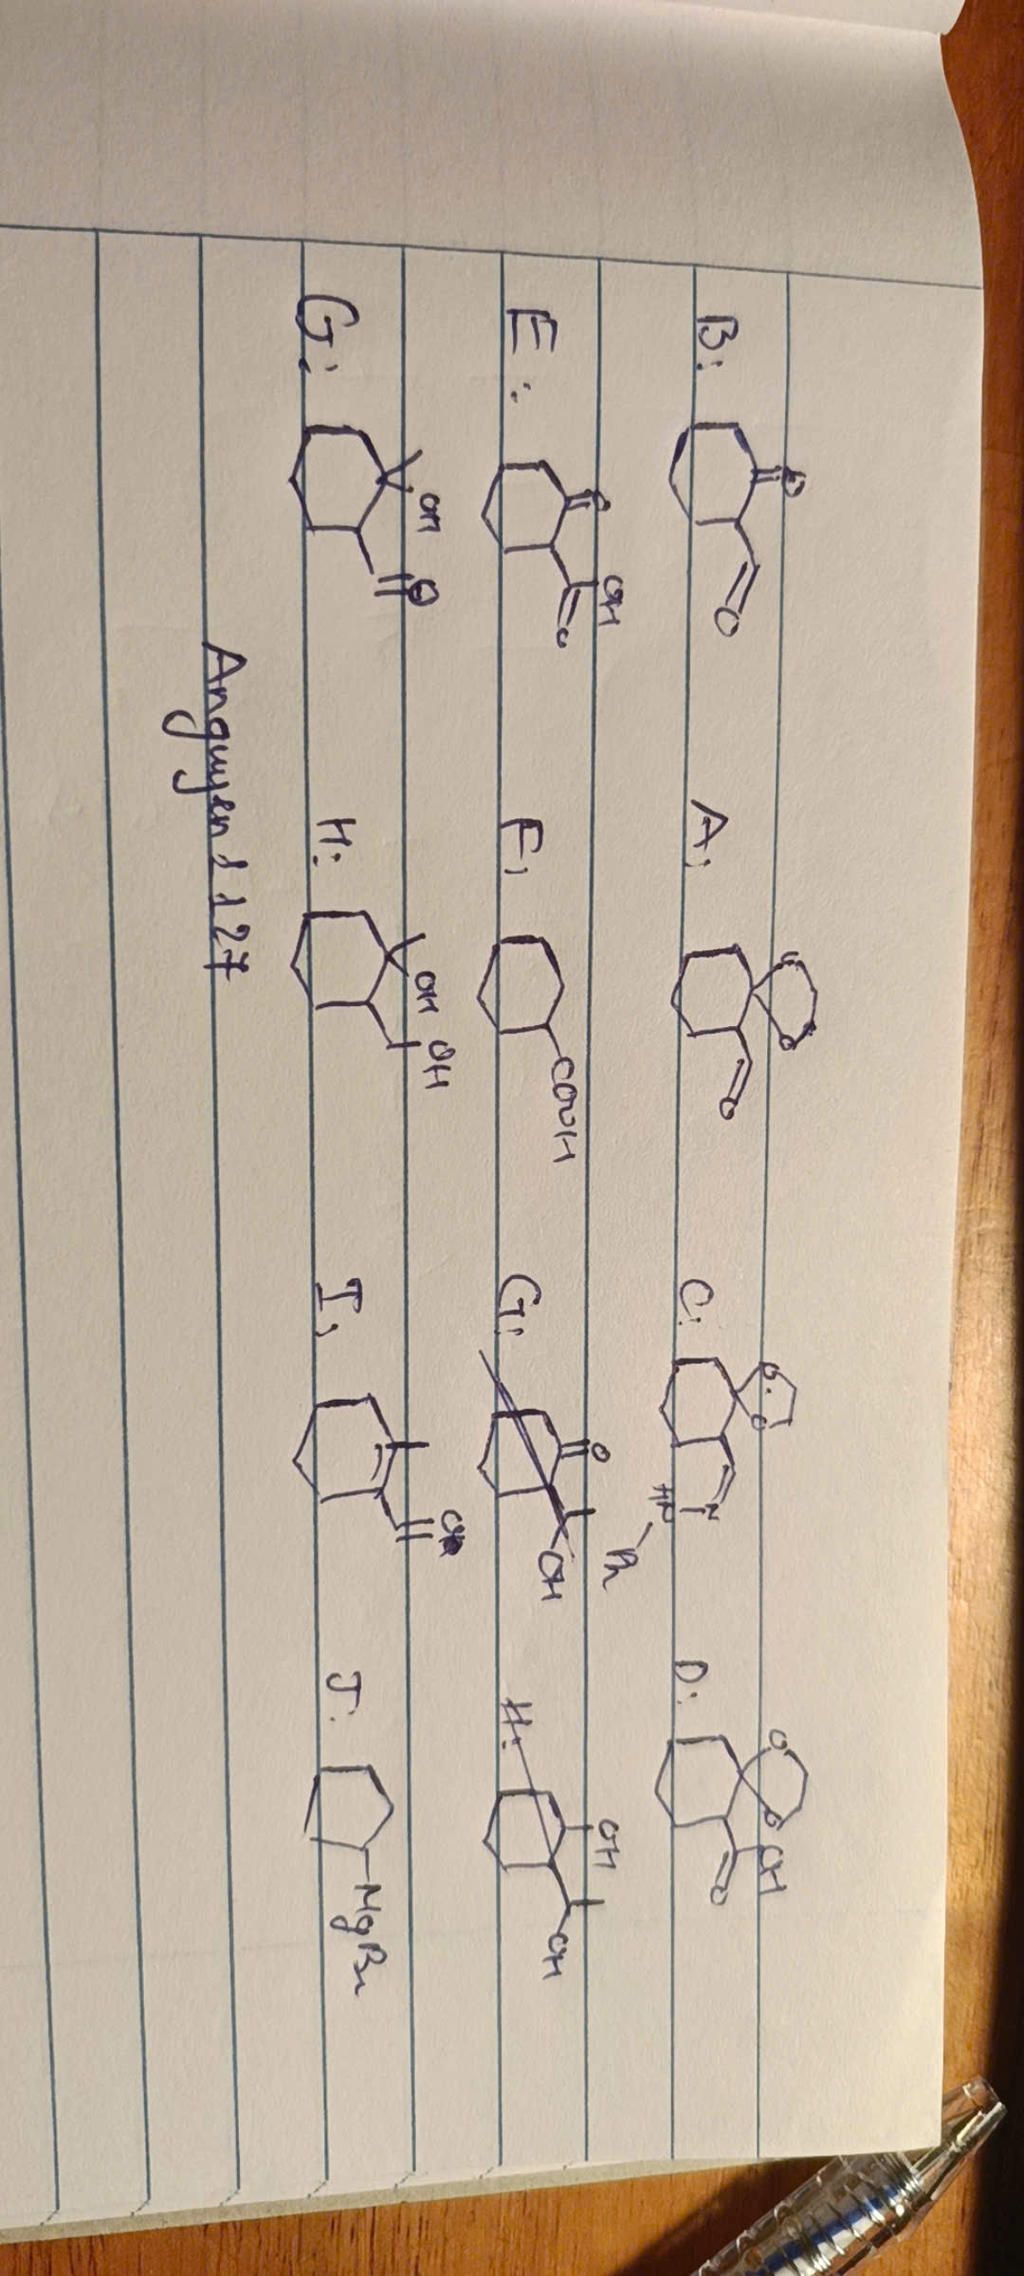 B: O O A: O O O C: O O N HN Ph D: O O OH O
E: O OH O F: COOH G: O OH H: OH OH
G: OH O H: OH OH I: J: MgBr
Anguyen1127